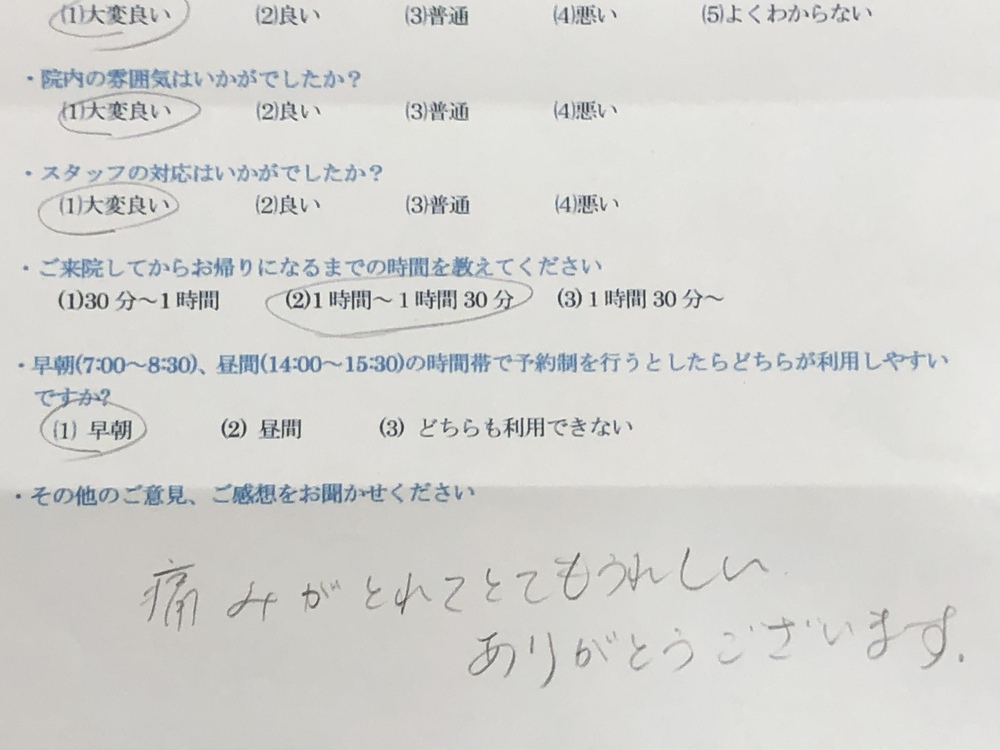 (1)大変良い (2)良い (3)普通 (4)悪い (5)よくわからない
・院内の雰囲気はいかがでしたか？
(1)大変良い (2)良い (3)普通 (4)悪い
・スタッフの対応はいかがでしたか？
(1)大変良い (2)良い (3)普通 (4)悪い
・ご来院してからお帰りになるまでの時間を教えてください
(1)30分～1時間 (2)1時間～1時間30分 (3)1時間30分～
・早朝(7:00～8:30)、昼間(14:00～15:30)の時間帯で予約制を行うとしたらどちらが利用しやすい
ですか?
(1) 早朝 (2) 昼間 (3) どちらも利用できない
・その他のご意見、ご感想をお聞かせください
痛みがとれてとてもうれしい
ありがとうございます.